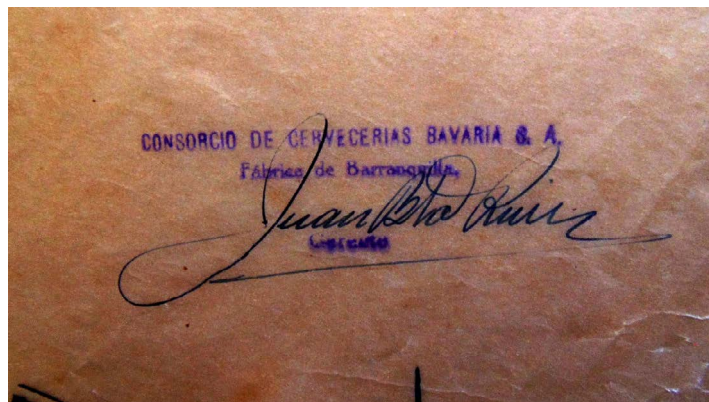 CONSORCIO DE CERVECERIAS BAVARIA S. A.
Fábrica de Barranquilla.
Juan Bta Ruiz
Gerente